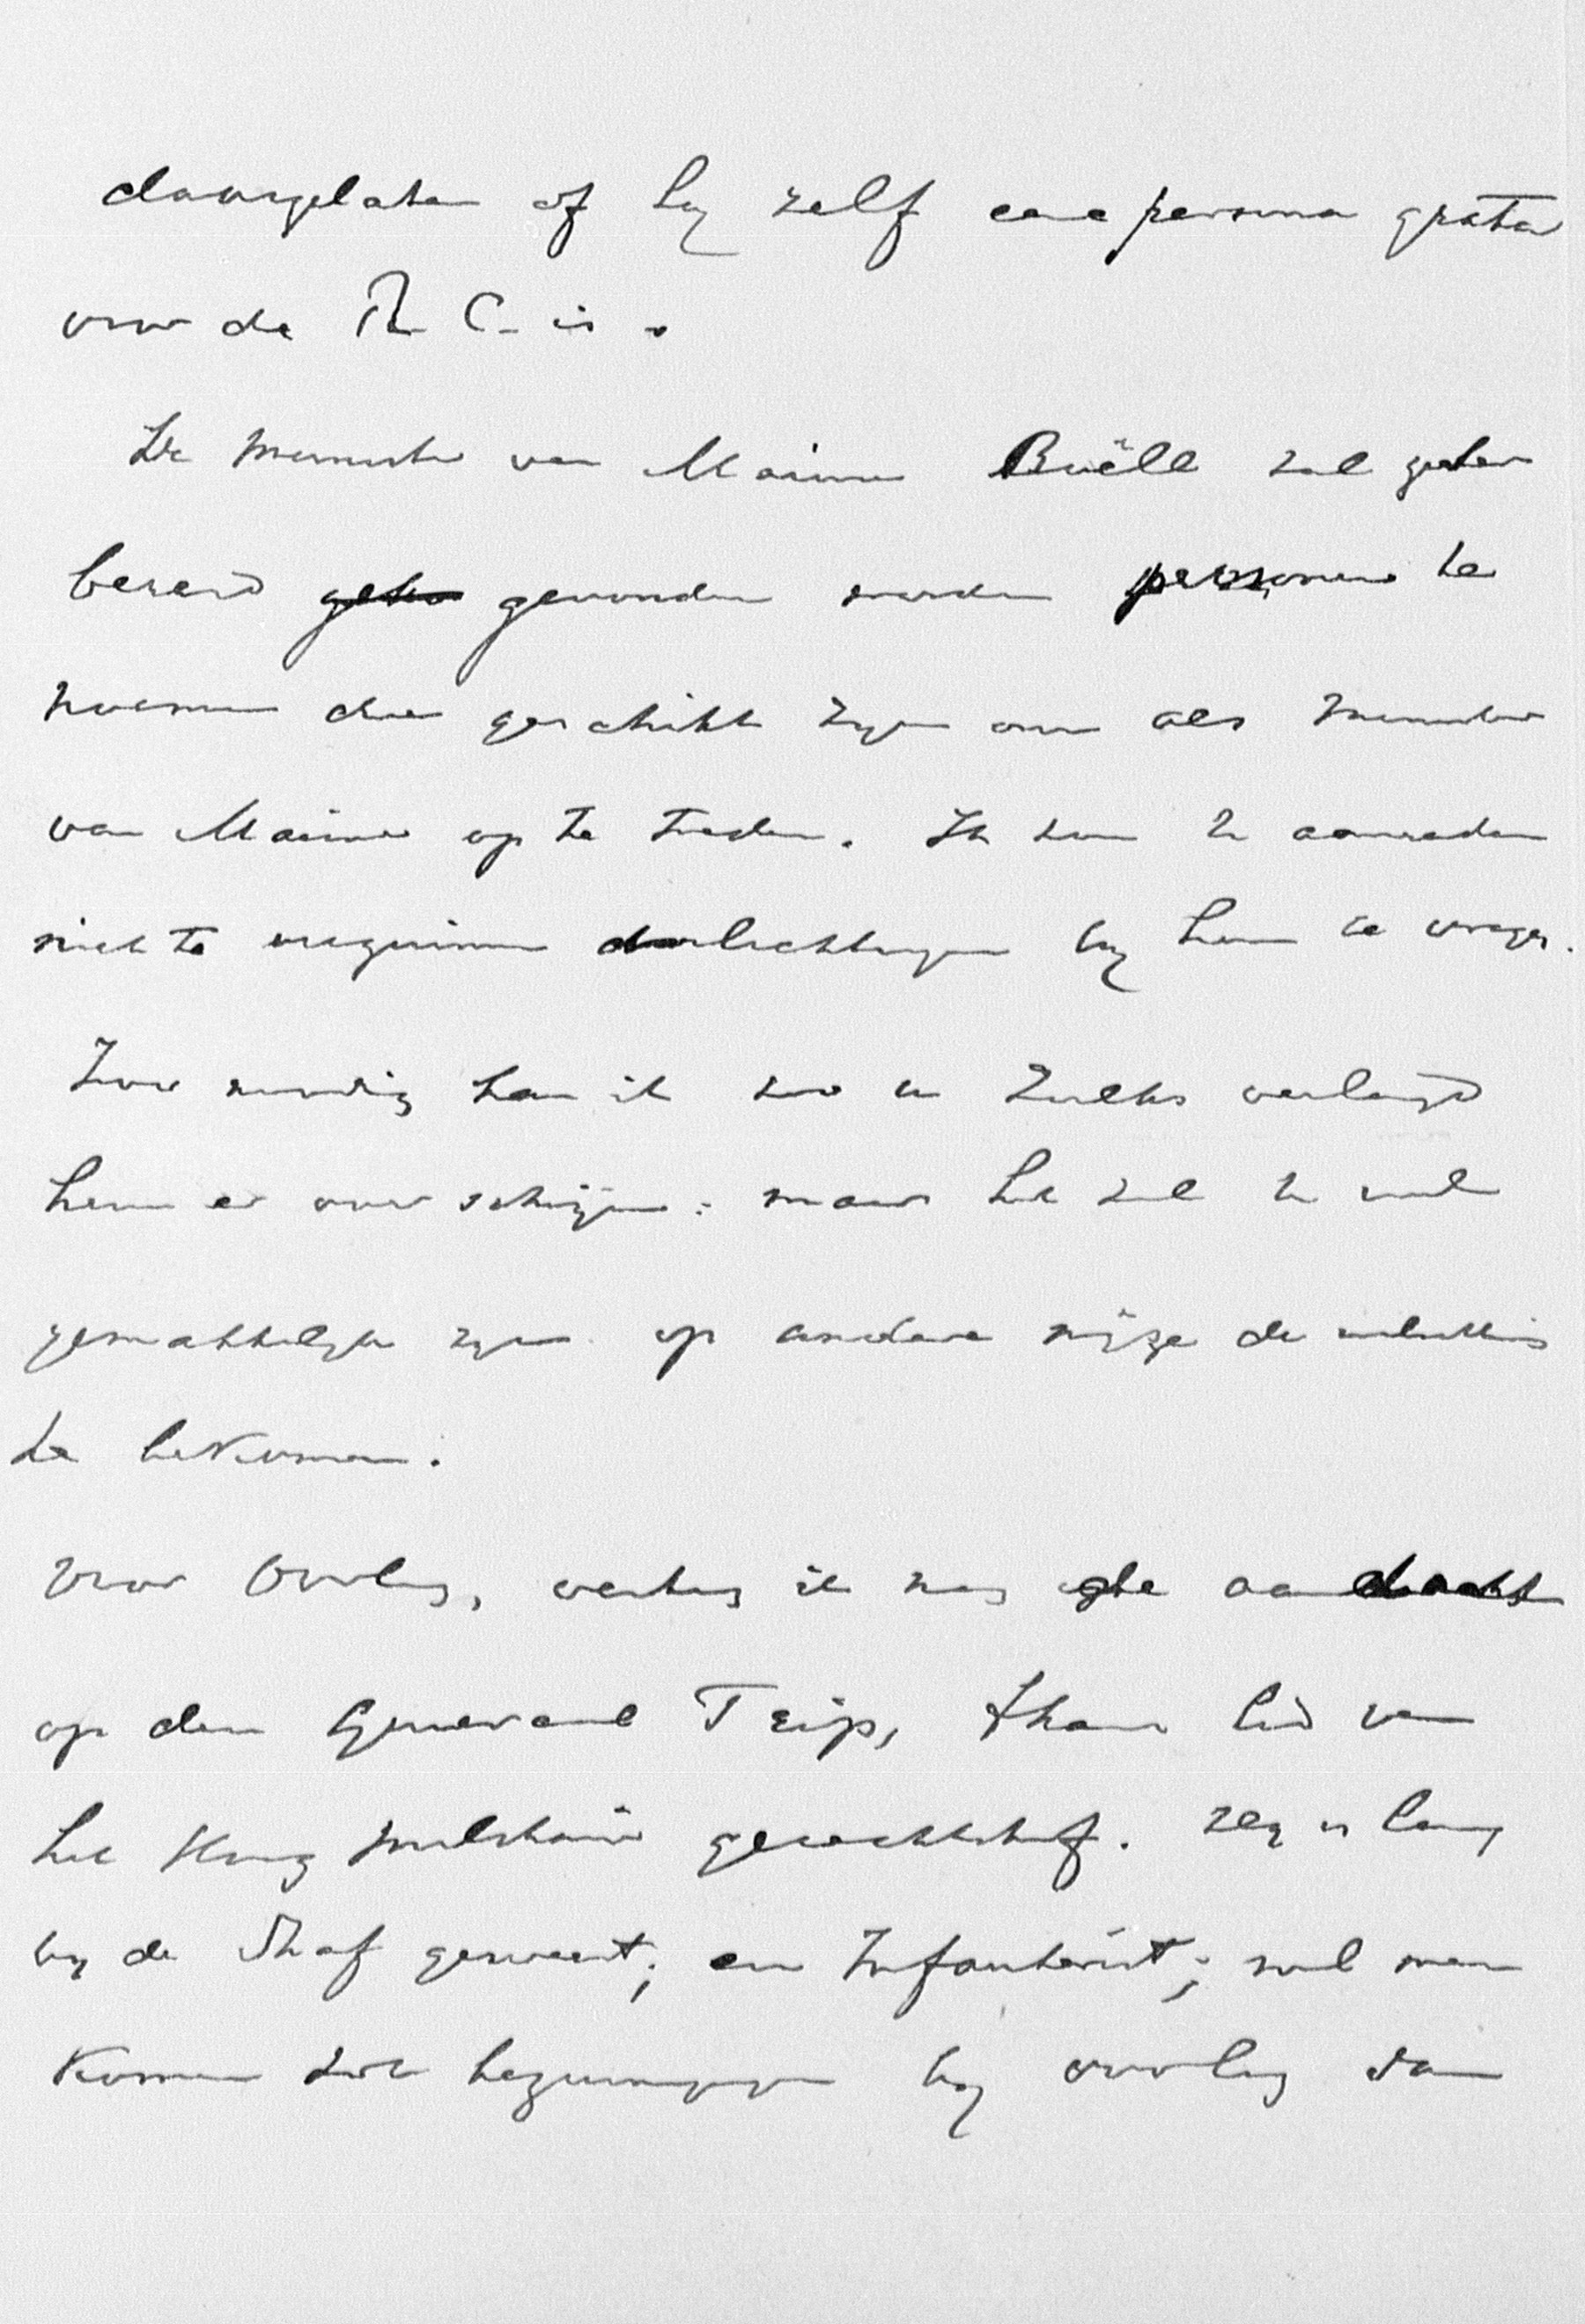 daargelaten of hy zelf eene persona grata
voor de R. C. is.
De Minister van Marine Buëll zal zeker
bereid gevonden worden personen te
noemen die geschikt zyn om als Minister
van Marine op te treden. Ik zou U aanraden
niet te verzuimen inlichtingen by hem te vragen.
Zoo noodig kan ik zoo u zulks verlangd
hem er over schrijven: maar het zal U wel
gemakkelyk zyn op andere wijze de
te bekomen.
Voor Oorlog, vestig ik nog de aandacht
op den Generaal Trip, thans lid van
het Hoog Militair gerechtshof. Zeer lang
by de Staf geweest; en Infanterist; wil men
komen tot bezuinigingen by oorlog dan